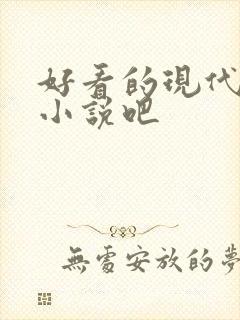 好看的現代
小說吧
無處安放的夢